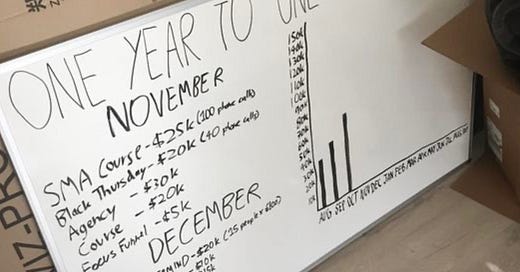 ONE YEAR TO ONE
NOVEMBER
SMA Course - $25k (100 phone calls)
Black Thursday - $20k (40 phone calls)
Agency - $30k
Course - $20k
Focus Funnel - $5k
DECEMBER
MIND - $20k (25 people x
$10k
$15k
150k
140k
130k
120k
110k
100k
90k
80k
70k
60k
50k
40k
30k
20k
10k
AUG SEP OCT NOV DEC JAN FEB MAR APR MAY JUN JUL AUG
WIZ-PRO